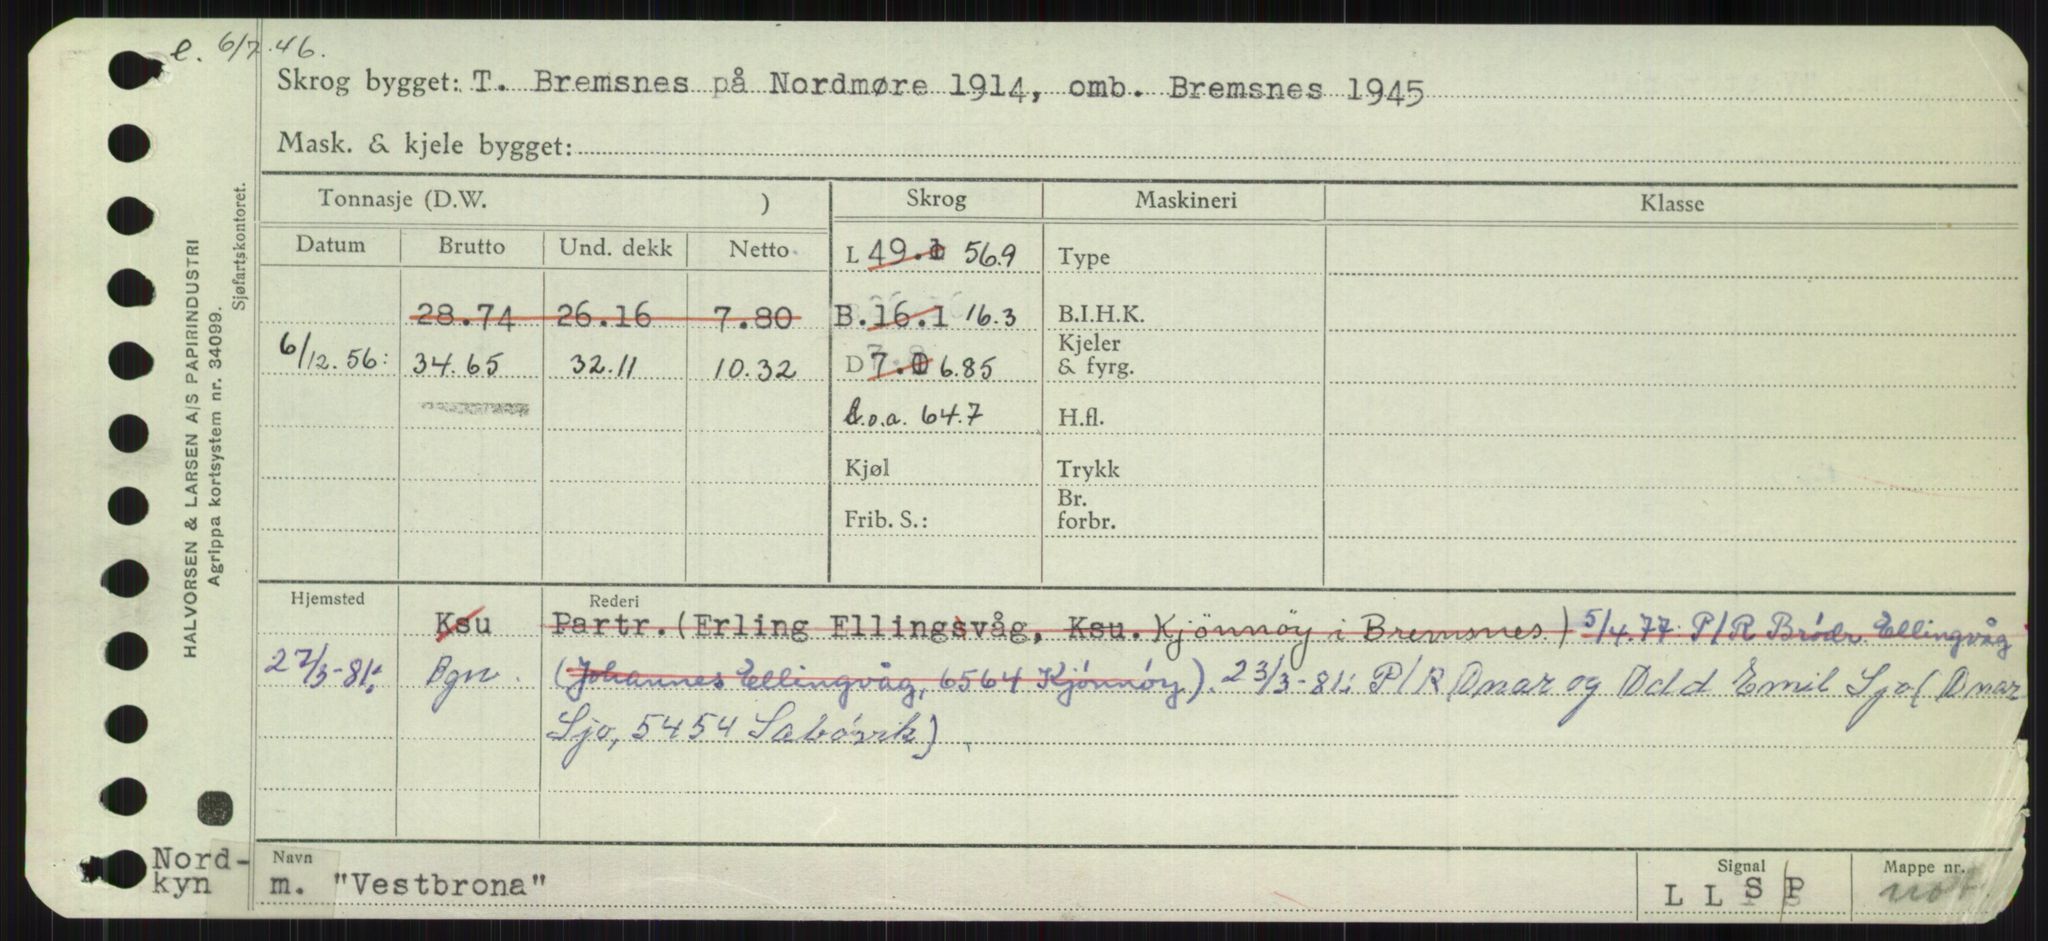 e. 6/7.46.
Skrog bygget: T. Bremsnes på Nordmøre 1914, omb. Bremsnes 1945
Mask. & kjele bygget:
Tonnasje (D.W. ) Skrog Maskineri Klasse
Datum Brutto Und. dekk Netto L 49.1 56.9 Type
28.74 26.16 7.80 B. 16.1 16.3 B.I.H.K.
6/12.56: 34.65 32.11 10.32 D 7.0 6.85 Kjeler & fyrg.
l.o.a. 64.7 H.fl.
Kjøl Trykk
Frib. S.: Br. forbr.
Hjemsted Rederi
Ksu Partr. (Erling Ellingsvåg, Ksu. Kjönnöy i Bremsnes.) 5/4.77. P/R Brödr. Ellingvåg
27/3-81: Bgn. (Johannes Ellingvåg, 6564 Kjönnöy). 23/3-81: P/R Onar og Odd Emil Sjo (Onar
Sjo, 5454 Sabövik)
Nord-
kyn
Navn
m. "Vestbrona"
Signal
L L S P
Mappe nr.
HALVORSEN & LARSEN A/S PAPIRINDUSTRI
Agrippa kortsystem nr. 34099.
Sjøfartskontoret.